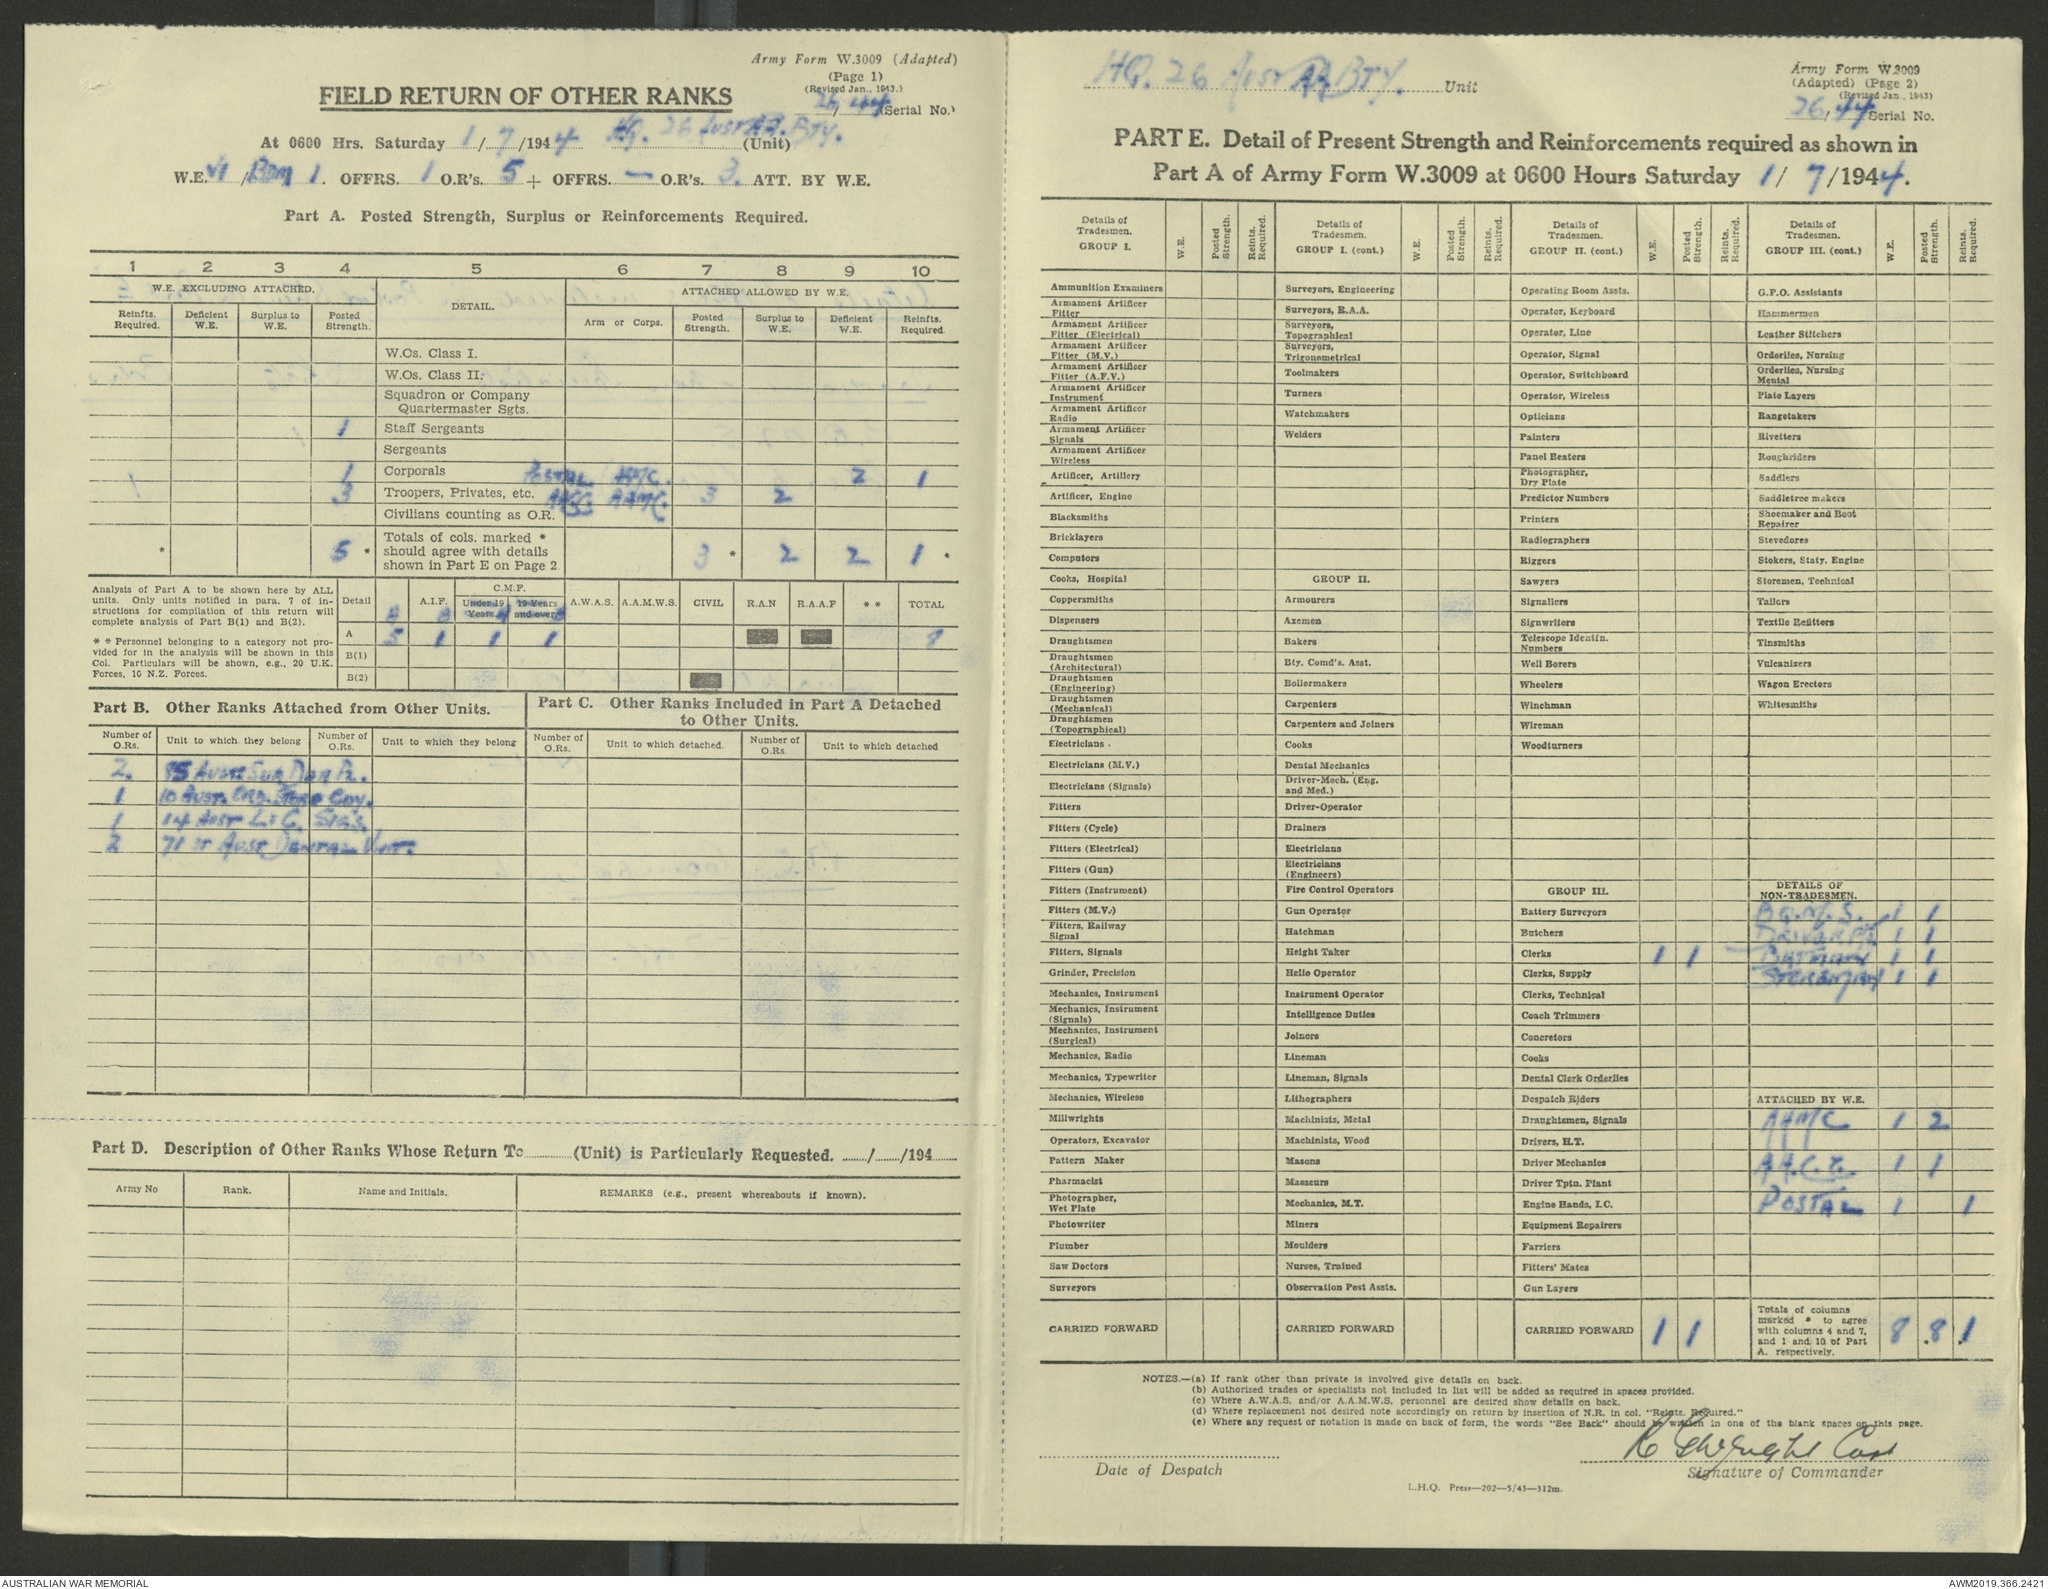 Army Form W.3009 (Adapted)
(Page 1)
(Revised Jan., 1943.)
FIELD RETURN OF OTHER RANKS
26/44 (Serial No.)
At 0600 Hrs. Saturday 1/7/1944 HQ. 26 Aust AA. BTY. (Unit)
W.E. VI / 1. OFFRS. 1 O.R's. 5 + OFFRS. — O.R's. 3. ATT. BY W.E.
Part A. Posted Strength, Surplus or Reinforcements Required.
1 2 3 4 5 6 7 8 9 10
W.E. EXCLUDING ATTACHED. DETAIL. ATTACHED ALLOWED BY W.E.
Reinfts. Required. Deficient W.E. Surplus to W.E. Posted Strength. Arm or Corps. Posted Strength. Surplus to W.E. Deficient W.E. Reinfts. Required.
W.Os. Class I.
W.Os. Class II.
Squadron or Company
Quartermaster Sgts.
1 Staff Sergeants
Sergeants
1 Corporals POSTAL 2 1
1 3 Troopers, Privates, etc. AAMC. 3 2
Civilians counting as O.R.
* 5 * Totals of cols. marked * should agree with details shown in Part E on Page 2 3 * 2 2 1 *
Analysis of Part A to be shown here by ALL
units. Only units notified in para. 7 of in-
structions for compilation of this return will
complete analysis of Part B(1) and B(2).
* * Personnel belonging to a category not pro-
vided for in the analysis will be shown in this
Col. Particulars will be shown, e.g., 20 U.K.
Forces, 10 N.Z. Forces.
Detail A.I.F. C.M.F. Under 19 Years. 19 Years and over. A.W.A.S. A.A.M.W.S. CIVIL R.A.N R.A.A.F * * TOTAL
A 5 1 1 1 8
B(1)
B(2)
Part B. Other Ranks Attached from Other Units.
Number of O.Rs. Unit to which they belong Number of O.Rs. Unit to which they belong
2. 85 Aust.
1 10 Aust. Ord. Store Coy.
1 14 Aust L of C. Sigs.
2 71 Aust Dental Unit.
Part C. Other Ranks Included in Part A Detached
to Other Units.
Number of O.Rs. Unit to which detached. Number of O.Rs. Unit to which detached
Part D. Description of Other Ranks Whose Return To (Unit) is Particularly Requested. / /194
Army No Rank. Name and Initials. REMARKS (e.g., present whereabouts if known).
HQ. 26 Aust AA BTY. Unit
Army Form W.3009
(Adapted) (Page 2)
(Revised Jan., 1943)
26/44 Serial No.
PART E. Detail of Present Strength and Reinforcements required as shown in
Part A of Army Form W.3009 at 0600 Hours Saturday 1/7/1944.
Details of Tradesmen. GROUP I. W.E. Posted Strength. Reints. Required.
Ammunition Examiners
Armament Artificer Fitter
Armament Artificer Fitter (Electrical)
Armament Artificer Fitter (M.V.)
Armament Artificer Fitter (A.F.V.)
Armament Artificer Instrument
Armament Artificer Radio
Armament Artificer Signals
Armament Artificer Wireless
Artificer, Artillery
Artificer, Engine
Blacksmiths
Bricklayers
Computors
Cooks, Hospital
Coppersmiths
Dispensers
Draughtsmen
Draughtsmen (Architectural)
Draughtsmen (Engineering)
Draughtsmen (Mechanical)
Draughtsmen (Topographical)
Electricians
Electricians (M.V.)
Electricians (Signals)
Fitters
Fitters (Cycle)
Fitters (Electrical)
Fitters (Gun)
Fitters (Instrument)
Fitters (M.V.)
Fitters, Railway Signal
Fitters, Signals
Grinder, Precision
Mechanics, Instrument
Mechanics, Instrument (Signals)
Mechanics, Instrument (Surgical)
Mechanics, Radio
Mechanics, Typewriter
Mechanics, Wireless
Millwrights
Operators, Excavator
Pattern Maker
Pharmacist
Photographer, Wet Plate
Photowriter
Plumber
Saw Doctors
Surveyors
CARRIED FORWARD
Details of Tradesmen. GROUP I. (cont.) W.E. Posted Strength. Reints. Required.
Surveyors, Engineering
Surveyors, R.A.A.
Surveyors, Topographical
Surveyors, Trigonometrical
Toolmakers
Turners
Watchmakers
Welders
GROUP II.
Armourers
Axemen
Bakers
Bty. Comd's. Asst.
Boilermakers
Carpenters
Carpenters and Joiners
Cooks
Dental Mechanics
Driver-Mech. (Eng. and Med.)
Driver-Operator
Drainers
Electricians
Electricians (Engineers)
Fire Control Operators
Gun Operator
Hatchman
Height Taker
Helio Operator
Instrument Operator
Intelligence Duties
Joiners
Lineman
Lineman, Signals
Lithographers
Machinists, Metal
Machinists, Wood
Masons
Masseurs
Mechanics, M.T.
Miners
Moulders
Nurses, Trained
Observation Post Assts.
CARRIED FORWARD
Details of Tradesmen. GROUP II. (cont.) W.E. Posted Strength. Reints. Required.
Operating Room Assts.
Operator, Keyboard
Operator, Line
Operator, Signal
Operator, Switchboard
Operator, Wireless
Opticians
Painters
Panel Beaters
Photographer, Dry Plate
Predictor Numbers
Printers
Radiographers
Riggers
Sawyers
Signallers
Signwriters
Telescope Identfn. Numbers
Well Borers
Wheelers
Winchman
Wireman
Woodturners
GROUP III.
Battery Surveyors
Butchers
Clerks 1 1
Clerks, Supply
Clerks, Technical
Coach Trimmers
Concretors
Cooks
Dental Clerk Orderlies
Despatch Riders
Draughtsmen, Signals
Drivers, H.T.
Driver Mechanics
Driver Tptn. Plant
Engine Hands, I.C.
Equipment Repairers
Farriers
Fitters' Mates
Gun Layers
CARRIED FORWARD 1 1
Details of Tradesmen. GROUP III. (cont.) W.E. Posted Strength. Reints. Required.
G.P.O. Assistants
Hammermen
Leather Stitchers
Orderlies, Nursing
Orderlies, Nursing Mental
Plate Layers
Rangetakers
Rivetters
Roughriders
Saddlers
Saddletree makers
Shoemaker and Boot Repairer
Stevedores
Stokers, Staty. Engine
Storemen, Technical
Tailors
Textile Refitters
Tinsmiths
Vulcanizers
Wagon Erectors
Whitesmiths
DETAILS OF NON-TRADESMEN.
B.Q.M.S. 1 1
DRIVER 1 1
BATMAN 1 1
STOREMAN 1 1
ATTACHED BY W.E.
AAMC 1 2
A.A.C.C. 1 1
POSTAL 1 1
Totals of columns marked * to agree with columns 4 and 7, and 1 and 10 of Part A. respectively. 8 8 1
NOTES.—(a) If rank other than private is involved give details on back.
(b) Authorised trades or specialists not included in list will be added as required in spaces provided.
(c) Where A.W.A.S. and/or A.A.M.W.S. personnel are desired show details on back.
(d) Where replacement not desired note accordingly on return by insertion of N.R. in col. "Reints. Required."
(e) Where any request or notation is made on back of form, the words "See Back" should be written in one of the blank spaces on this page.
Date of Despatch
Signature of Commander
L.H.Q. Press—202—5/43—312m.
AUSTRALIAN WAR MEMORIAL
AWM2019.366.2421